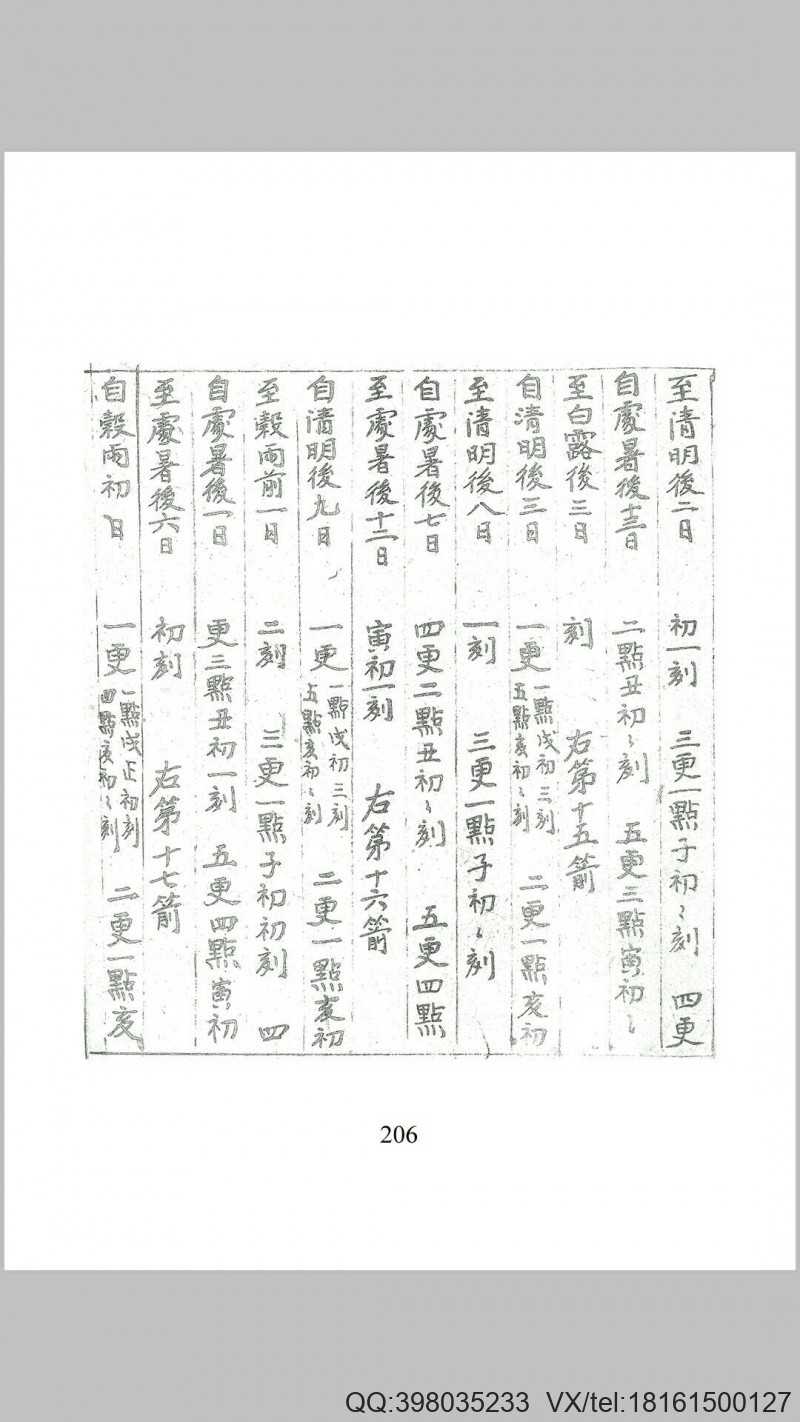 至清明後二日　初一刻　三更一點子初〻刻　四更
自處暑後十三日　二點丑初〻刻　五更三點寅初〻
至白露後三日　刻　右第十五箭
自清明後三日　一更　一點戌初三刻　五點亥初〻刻　二更一點亥初
至清明後八日　一刻　三更一點子初〻刻
自處暑後七日　四更二點丑初〻刻　五更四點
至處暑後十二日　寅初一刻　右第十六箭
自清明後九日　一更　一點戌初三刻　五點亥初〻刻　二更一點亥初
至穀雨前一日　二刻　三更一點子初初刻　四
自處暑後一日　更三點丑初一刻　五更四點寅初
至處暑後六日　初刻　右第十七箭
自穀雨初日　一更　一點戌正初刻　四點亥初〻刻　二更一點亥
206
QQ:398035233 VX/tel:18161500127